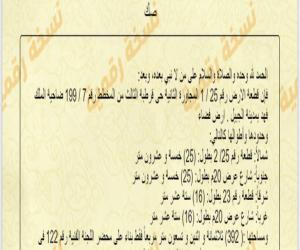 صك
الحمد لله وحده والصلاة والسلام على من لا نبي بعده، وبعد:
فإن قطعة الارض رقم 25 / 1 المجاورة الثانية حى قرطبة الثالث من المخطط رقم 7 / 199 ضاحية الملك
فهد بمدينة الجبيل . أرض فضاء
وحدودها وأطوالها كالتالي:
شمالاً: قطعة رقم 25/ 2 بطول: (25) خمسة و عشرون متر
جنوباً: شارع عرض 20م بطول: (25) خمسة و عشرون متر
شرقاً: قطعة رقم 23 بطول: (16) ستة عشر متر
غرباً: شارع عرض 20م بطول: (16) ستة عشر متر
ومساحتها : (392) ثلاثمائة و اثنين و تسعون متر مربعاً فقط بناء على محضر اللجنة الفنية رقم 122 فى
نسخة رقمية
نسخة رقمية